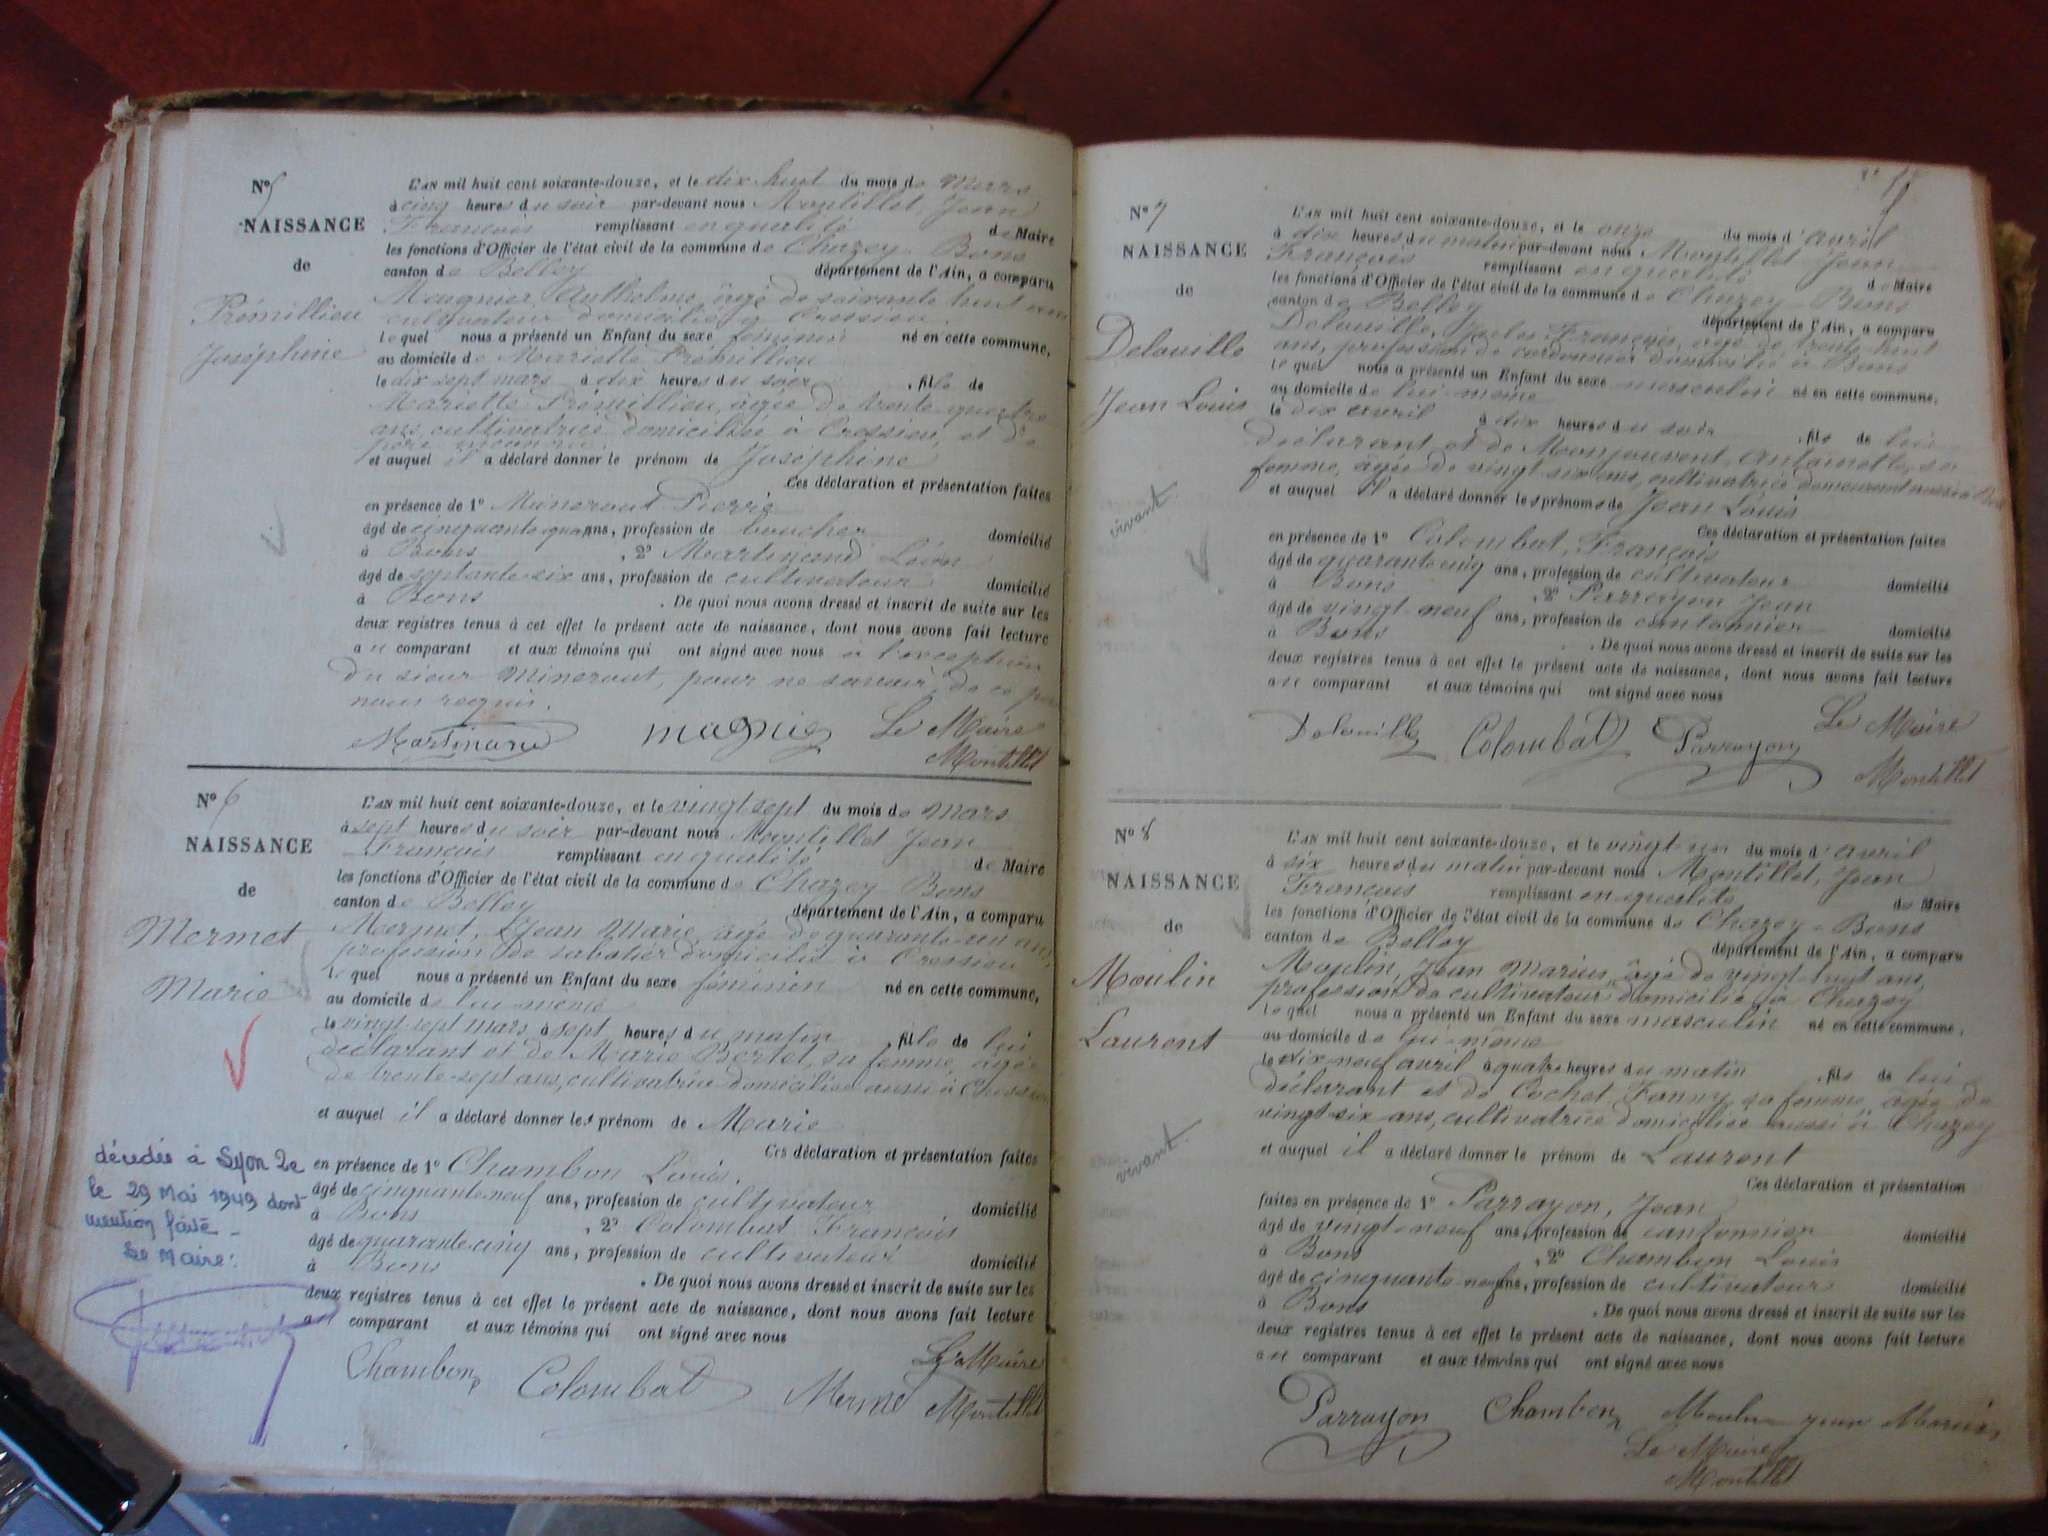 No 5
NAISSANCE
de
Prémillieu
Joséphine
L'AN mil huit cent soixante-douze, et le dix huit du mois de Mars
à cinq heures du soir par-devant nous Montillet, Jean
François remplissant en qualité de Maire
les fonctions d'Officier de l'état civil de la commune de Chazey-Bons
canton de Belley département de l'Ain, a comparu
Meugnier, Anthelme, âgé de soixante huit ans
cultivateur domicilié à Cressieu
le quel nous a présenté un Enfant du sexe féminin né en cette commune,
au domicile de Mariette Prémillieu
le dix sept mars à dix heures du soir , fille de
Mariette Prémillieu, âgée de trente quatre
ans, cultivatrice domiciliée à Cressieu, et de
père inconnu.
et auquel il a déclaré donner le prénom de Joséphine
Ces déclaration et présentation faites
en présence de 1° Pierre
âgé de cinquante ans, profession de boucher domicilié
à Bons , 2° Martinand Léon
âgé de septante-six ans, profession de cultivateur domicilié
à Bons . De quoi nous avons dressé et inscrit de suite sur les
deux registres tenus à cet effet le présent acte de naissance, dont nous avons fait lecture
au comparant et aux témoins qui ont signé avec nous à l'exception
du sieur pour ne savoir, de ce par
nous requis.
Martinand Magnie Le Maire
Montillet
No 6
NAISSANCE
de
Mermet
Marie
L'AN mil huit cent soixante-douze, et le vingt sept du mois de Mars
à sept heures du soir par-devant nous Montillet Jean
François remplissant en qualité de Maire
les fonctions d'Officier de l'état civil de la commune de Chazey Bons
canton de Belley département de l'Ain, a comparu
Mermet, Jean Marie, âgé de quarante-un ans,
profession de sabotier domicilié à Cressieu
le quel nous a présenté un Enfant du sexe féminin né en cette commune,
au domicile de lui même
le vingt-sept mars à sept heures du matin fille de lui
déclarant et de Marie Bertet, sa femme, âgée
de trente-sept ans, cultivatrice domiciliée aussi à Cressieu
et auquel il a déclaré donner les prénom de Marie
Ces déclaration et présentation faites
en présence de 1° Chambon Louis,
âgé de cinquante-neuf ans, profession de cultivateur domicilié
à Bons , 2° Colombat François
âgé de quarante-cinq ans, profession de cultivateur domicilié
à Bons . De quoi nous avons dressé et inscrit de suite sur les
deux registres tenus à cet effet le présent acte de naissance, dont nous avons fait lecture
au comparant et aux témoins qui ont signé avec nous
Chambon Colombat Mermet Le Maire
Montillet
décédée à Lyon 2e
le 29 Mai 1949 dont
mention faite -
Le Maire:
No 7
NAISSANCE
de
Delouille
Jean Louis
vivant
L'AN mil huit cent soixante-douze, et le onze du mois d'avril
à dix heures du matin par-devant nous Montillet Jean
François remplissant en qualité de Maire
les fonctions d'Officier de l'état civil de la commune de Chazey-Bons
canton de Belley département de l'Ain, a comparu
Delouille, François, âgé de trente-huit
ans, profession de cordonnier domicilié à Bons
le quel nous a présenté un Enfant du sexe masculin né en cette commune,
au domicile de lui-même
le dix avril à dix heures du soir , fils de lui
déclarant et de Monjouvent, Antoinette, sa
femme, âgée de vingt six ans, cultivatrice demeurant aussi à Bons
et auquel il a déclaré donner les prénoms de Jean Louis
Ces déclaration et présentation faites
en présence de 1° Colombat, François
âgé de quarante cinq ans, profession de cultivateur domicilié
à Bons , 2° Parrayon Jean
âgé de vingt-neuf ans, profession de cantonnier domicilié
à Bons . De quoi nous avons dressé et inscrit de suite sur les
deux registres tenus à cet effet le présent acte de naissance, dont nous avons fait lecture
au comparant et aux témoins qui ont signé avec nous
Delouille Colombat Parrayon Le Maire
Montillet
No 8
NAISSANCE
de
Moulin
Laurent
vivant
L'AN mil huit cent soixante-douze, et le vingt-un du mois d'avril
à six heures du matin par-devant nous Montillet, Jean
François remplissant en qualité de Maire
les fonctions d'Officier de l'état civil de la commune de Chazey-Bons
canton de Belley département de l'Ain, a comparu
Moulin, Jean Marius, âgé de vingt-huit ans,
profession de cultivateur domicilié à Chazey
le quel nous a présenté un Enfant du sexe masculin né en cette commune,
au domicile de lui-même
le dix-neuf avril à quatre heures du matin , fils de lui
déclarant et de Cochet Fanny, sa femme, âgée de
vingt-six ans, cultivatrice domiciliée aussi à Chazey
et auquel il a déclaré donner le prénom de Laurent
Ces déclaration et présentation
faites en présence de 1° Parrayon, Jean
âgé de vingt-neuf ans, profession de cantonnier domicilié
à Bons , 2° Chambon Louis
âgé de cinquante-neuf ans, profession de cultivateur domicilié
à Bons . De quoi nous avons dressé et inscrit de suite sur les
deux registres tenus à cet effet le présent acte de naissance, dont nous avons fait lecture
au comparant et aux témoins qui ont signé avec nous
Parrayon Chambon Moulin Jean Marius
Le Maire
Montillet